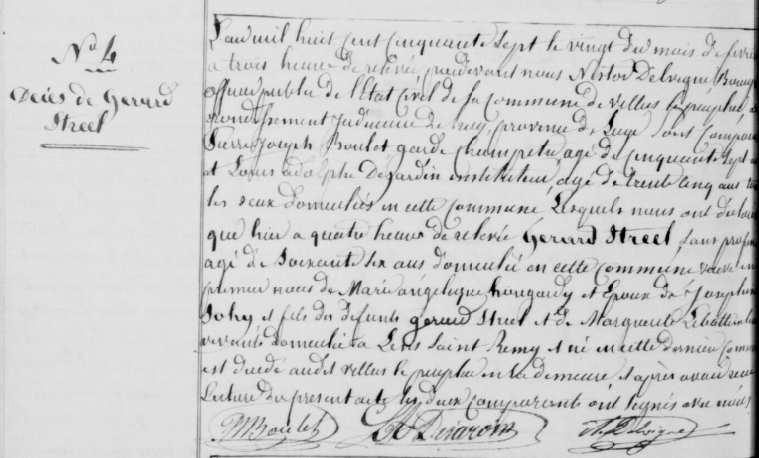 No 4
Décès de Gerard
Streel
L'an mil huit cent cinquante sept le vingt du mois de fevrier
a trois heure de relevée, pardevant nous Nestor Delvigne, Bourg
officier public de l'Etat Civil de la Commune de villers le peuplier, a
rondissement Judiciaire de huy, province de Liege Sont Comparu
Pierre Joseph Boulet garde Champetre agé de cinquante sept a
et Louis adolphe Dejardin instituteur, agé de trente cinq ans tou
les deux domiciliés en cette Commune, Lesquels nous ont declaré
que hier a quatre heures de relevée Gerard Streel Sans profes
agé de Soixante six ans domicilié en cette Commune veuve en
premier noces de Marie angelique hougardy et Epoux de Josephine
Johy et fils des defunts gerard Streel et de Marguerite Lebotte
vivants domicilié a Lens Saint Remy et né en cette dernier Comm
est decede audit villers le peuplier en sa demeure et après avoir
Lecture du present acte les deux comparants ont signés avec nous
PJ Boulet L A Dejardin N. Delvigne